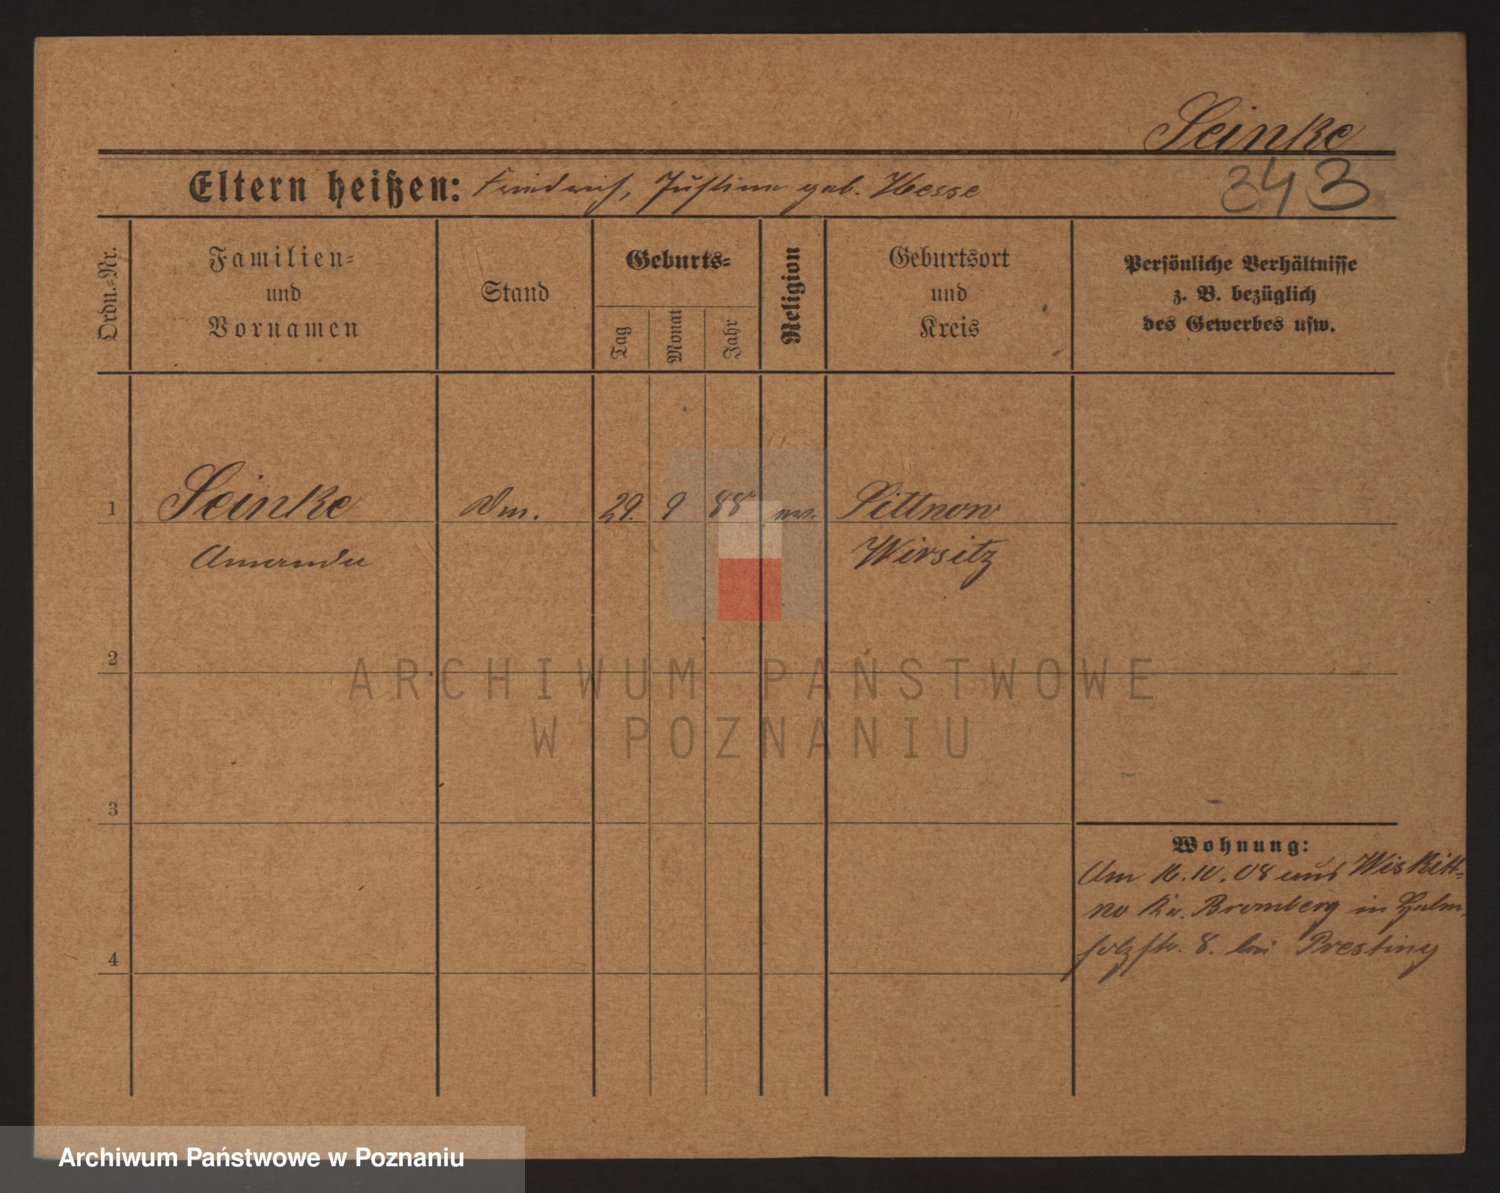 Seinke
343
Eltern heißen: Friedrich, Justina geb. Hesse
Ordn.-Nr.
Familien-
und
Vornamen
Stand
Geburts-
Tag
Monat
Jahr
Religion
Geburtsort
und
Kreis
Persönliche Verhältnisse
z. B. bezüglich
des Gewerbes usw.
1 Seinke 29. 9 88 Sittnow
Amanda Wirsitz
2
ARCHIWUM PAŃSTWOWE
W POZNANIU
3
Wohnung:
Am 16.10.08 aus Wiskitt-
no Kr. Bromberg in
8. bei Presting
4
Archiwum Państwowe w Poznaniu